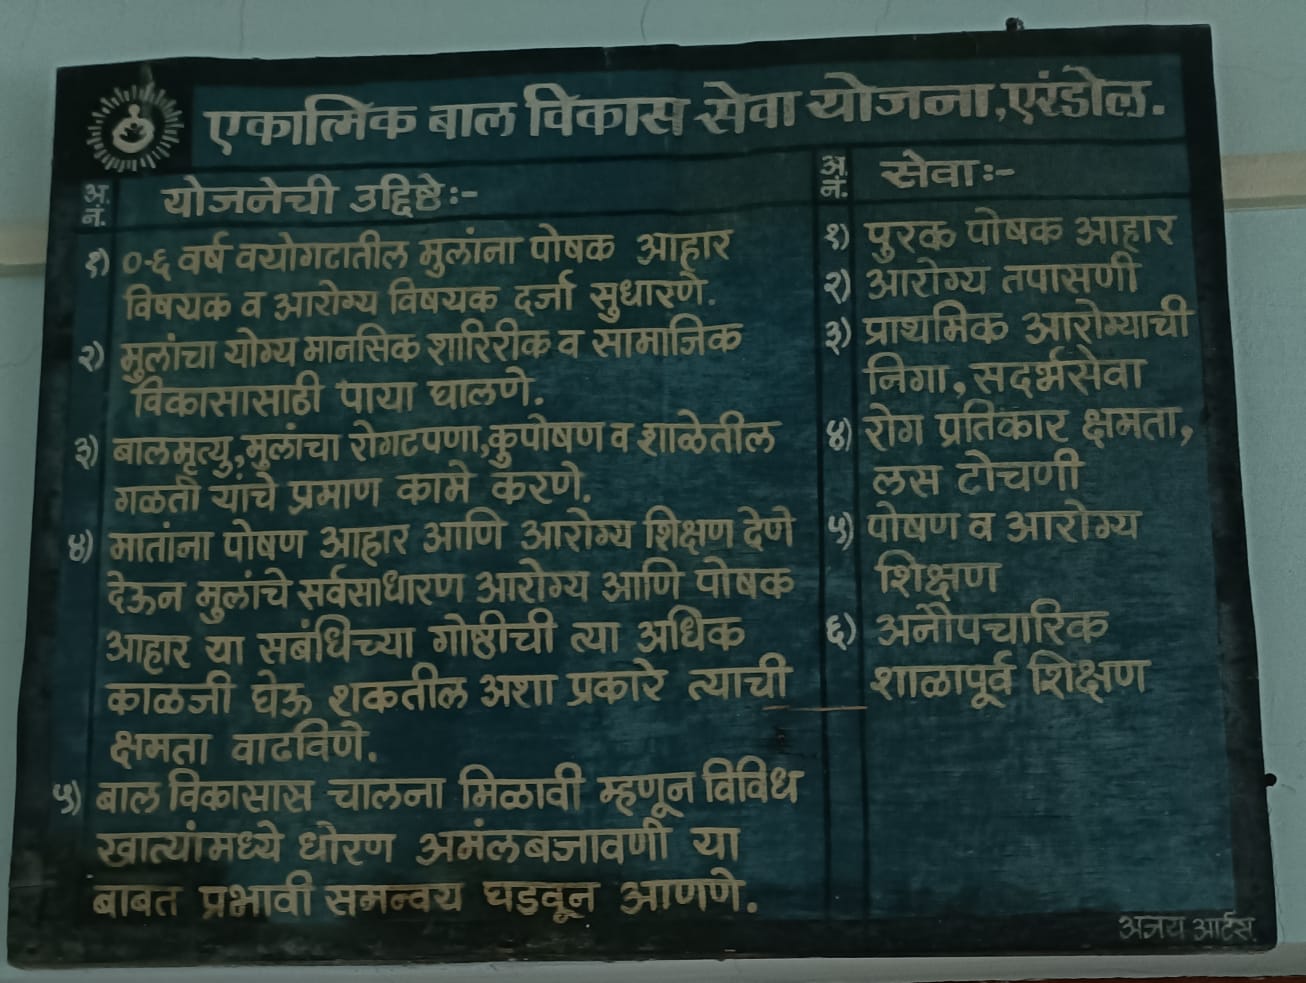 एकात्मिक बाल विकास सेवा योजना,एरंडोल.
अ.नं. योजनेची उद्दिष्टे:-
१) ०-६ वर्ष वयोगटातील मुलांना पोषक आहार
विषयक व आरोग्य विषयक दर्जा सुधारणे.
२) मुलांचा योग्य मानसिक शारिरीक व सामाजिक
विकासासाठी पाया घालणे.
३) बालमृत्यु,मुलांचा रोगटपणा,कुपोषण व शाळेतील
गळती यांचे प्रमाण कामे करणे.
४) मातांना पोषण आहार आणि आरोग्य शिक्षण देणे
देऊन मुलांचे सर्वसाधारण आरोग्य आणि पोषक
आहार या सबंधिच्या गोष्ठीची त्या अधिक
काळजी घेऊ शकतील अशा प्रकारे त्याची
क्षमता वाढविणे.
५) बाल विकासास चालना मिळावी म्हणून विविध
खात्यांमध्ये धोरण अमंलबजावणी या
बाबत प्रभावी समन्वय घडवून आणणे.
अ.नं. सेवा:-
१) पुरक पोषक आहार
२) आरोग्य तपासणी
३) प्राथमिक आरोग्याची
निगा, सदर्भसेवा
४) रोग प्रतिकार क्षमता,
लस टोचणी
५) पोषण व आरोग्य
शिक्षण
६) अनौपचारिक
शाळापूर्व शिक्षण
अजय आर्टस्